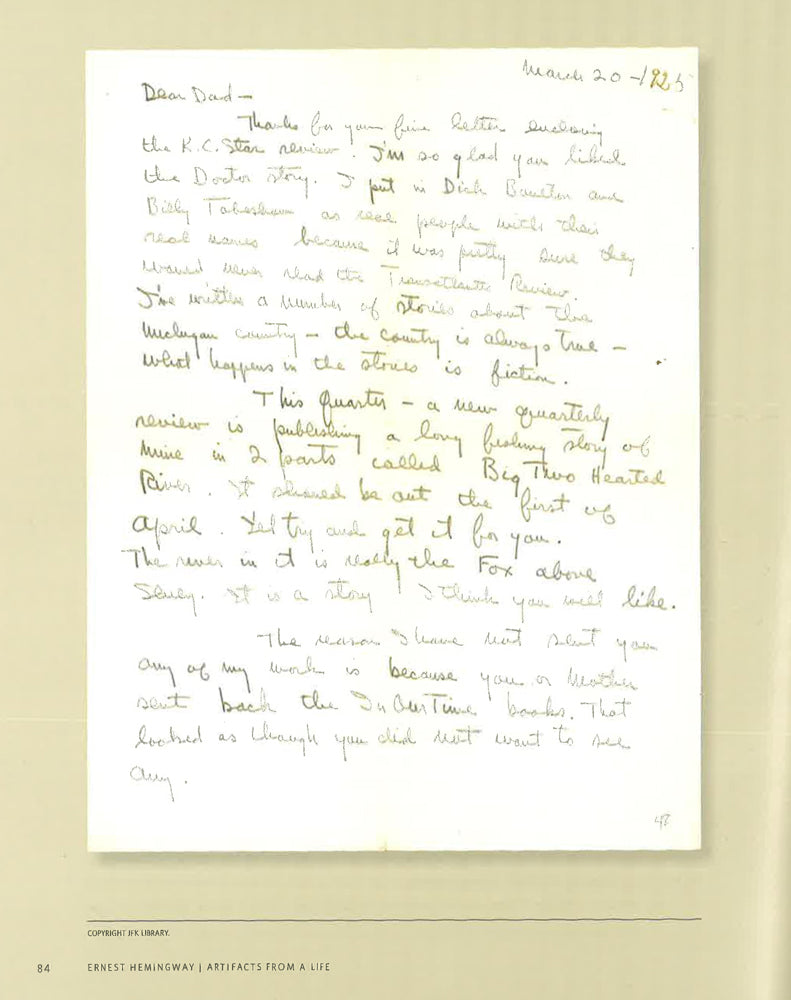 March 20 - 1925
Dear Dad -
Thanks for your fine letter enclosing
the K.C. Star review. I'm so glad you liked
the Doctor story. I put in Dick Boulton and
Billy Tabeshaw as real people with their
real names because it was pretty sure they
would never read the Transatlantic Review.
I've written a number of stories about the
Michigan country - the country is always true -
what happens in the stories is fiction.
This Quarter - a new quarterly
review is publishing a long fishing story of
mine in 2 parts called Big Two Hearted
River. It should be out the first of
April. I'll try and get it for you.
The river in it is really the Fox above
Seney. It is a story I think you will like.
The reason I have not sent you
any of my work is because you or Mother
sent back the In Our Time books. That
looked as though you did not want to see
any.
47
COPYRIGHT JFK LIBRARY.
84 ERNEST HEMINGWAY | ARTIFACTS FROM A LIFE